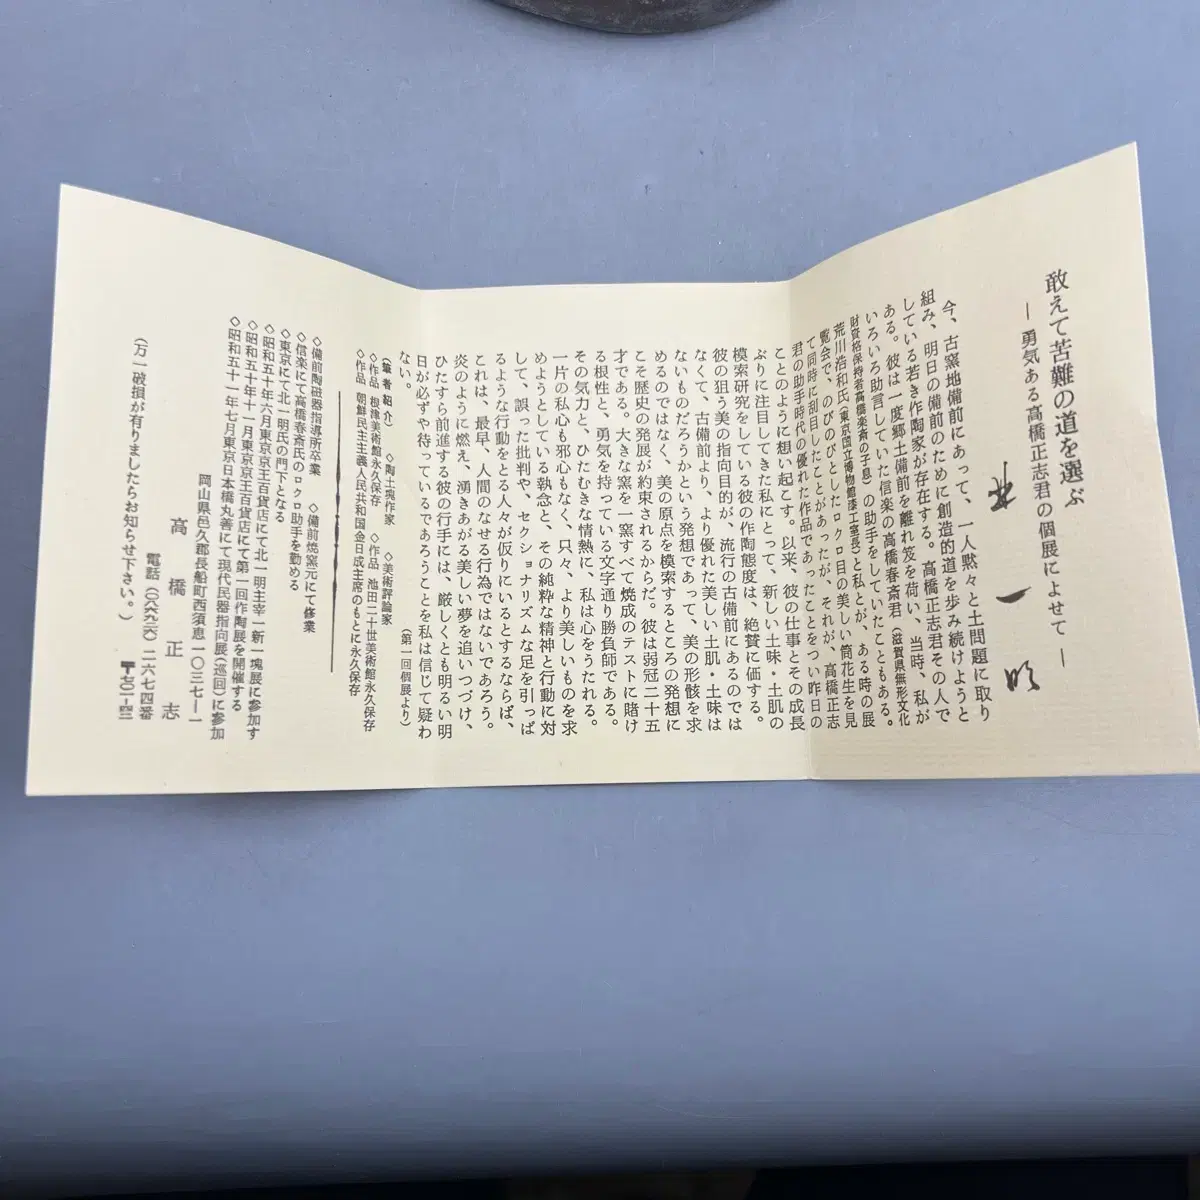 敢えて苦難の道を選ぶ
―勇気ある高橋正志君の個展によせて―
北一明
今、古窯地備前にあって、一人黙々と土問題に取り
組み、明日の備前のために創造的道を歩み続けようと
している若き作陶家が存在する。高橋正志君その人で
ある。彼は一度郷土備前を離れ笈を荷い、当時、私が
いろいろ助言していた信楽の高橋春斎君（滋賀県無形文化
財資格保持者高橋楽斎の子息）の助手をしていたこともある。
荒川浩和氏（東京国立博物館漆工室長）と私とが、ある時の展
覧会で、のびのびとしたロクロ目の美しい筒花生を見
て同時に刮目したことがあったが、それが、高橋正志
君の助手時代の優れた作品であったことをつい昨日の
ことのように想い起こす。以来、彼の仕事とその成長
ぶりに注目してきた私にとって、新しい土味・土肌の
模索研究をしている彼の作陶態度は、絶賛に価する。
彼の狙う美の指向目的が、流行の古備前にあるのでは
なくて、古備前より、より優れた美しい土肌・土味は
ないものだろうかという発想であって、美の形骸を求
めるのではなく、美の原点を模索するところの発想に
こそ歴史の発展が約束されるからだ。彼は弱冠二十五
才である。大きな窯を一窯すべて焼成のテストに賭け
る根性と、勇気を持っている文字通り勝負師である。
その気力と、ひたむきな情熱に、私は心をうたれる。
一片の私心も邪心もなく、只々、より美しいものを求
めようとしている執念と、その純粋な精神と行動に対
して、誤った批判や、セクショナリズムな足を引っぱ
るような行動をとる人々が仮りにいるとするならば、
これは、最早、人間のなせる行為ではないであろう。
炎のように燃え、湧きあがる美しい夢を追いつづけ、
ひたすら前進する彼の行手には、厳しくとも明るい明
日が必ずや待っているであろうことを私は信じて疑わ
ない。
（第一回個展より）
（筆者紹介）　◇陶土塊作家　◇美術評論家
◇作品　根津美術館永久保存　◇作品　池田二十世美術館永久保存
◇作品　朝鮮民主主義人民共和国金日成主席のもとに永久保存
◇備前陶磁器指導所卒業　◇備前焼窯元にて修業
◇信楽にて高橋春斎氏のロクロ助手を勤める
◇東京にて北一明氏の門下となる
◇昭和五十年六月東京京王百貨店にて北一明主宰一新一塊展に参加す
◇昭和五十年十一月東京京王百貨店にて第一回作陶展を開催する
◇昭和五十一年七月東京日本橋丸善にて現代民器指向展（巡回）に参加
岡山県邑久郡長船町西須恵一〇三七ー一
〒七〇一ー四二
電話（〇八六九二六）二六七四番
高橋正志
（万一破損が有りましたらお知らせ下さい。）